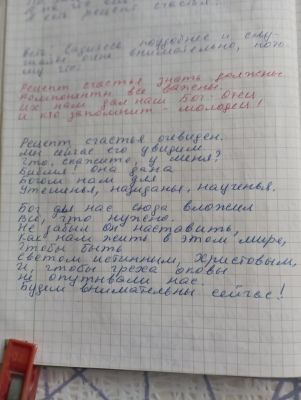 и есть рецепт счастья
подробнее и слу-
внимательно, пото
му что:
Рецепт счастья знать должны
Компоненты все важны.
Их нам дал наш Бог отец
И кто запомнит молодец!
Рецепт счастья очевиден.
Мы сейчас его увидим.
Что, скажите, у меня?
Библия! она дана
Богом нам для
Утешенья, назиданья, наученья.
Бог для нас сюда вложил
Всё, что нужно.
Не забыл он наставить,
Как нам жить в этом мире,
чтобы быть
светом истинным, Христовым,
И, чтобы греха оковы
не опутывали нас.
Будем внимательны сейчас!